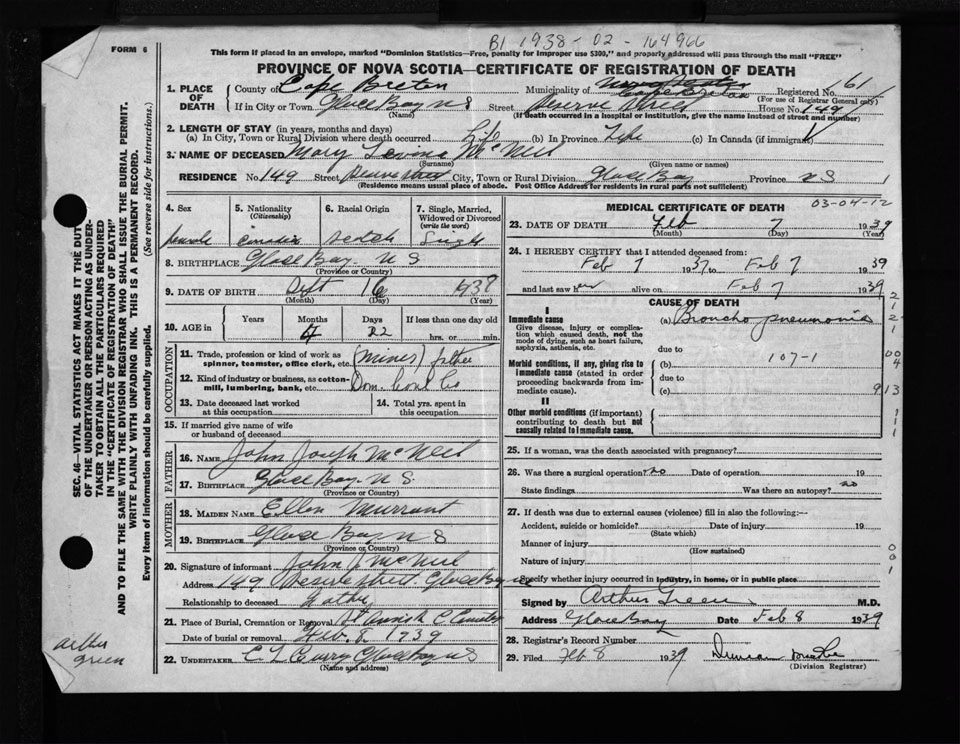 B1 1938-02-164966
FORM 6
This form if placed in an envelope, marked "Dominion Statistics—Free, penalty for improper use $300," and properly addressed will pass through the mail "FREE"
PROVINCE OF NOVA SCOTIA—CERTIFICATE OF REGISTRATION OF DEATH
1. PLACE OF DEATH
County of Cape Breton Municipality of Cape Breton Registered No. 61
(For use of Registrar General only)
If in City or Town Glace Bay N S Street Reserve Street House No. 149
(Name) (If death occurred in a hospital or institution, give the name instead of street and number)
2. LENGTH OF STAY (in years, months and days)
(a) In City, Town or Rural Division where death occurred Life (b) In Province Life (c) In Canada (if immigrant)
3. NAME OF DECEASED Mary McNeil
(Surname) (Given name or names)
RESIDENCE No. 149 Street Reserve Street City, Town or Rural Division Glace Bay Province N S 1
(Residence means usual place of abode. Post Office Address for residents in rural parts not sufficient)
4. Sex 5. Nationality 6. Racial Origin 7. Single, Married,
(Citizenship) Widowed or Divorced
(write the word)
female Canadian Scotch Single
8. BIRTHPLACE Glace Bay N S
(Province or Country)
9. DATE OF BIRTH Sept 16 1938
(Month) (Day) (Year)
10. AGE in Years Months Days If less than one day old
4 22 hrs. or min.
OCCUPATION
11. Trade, profession or kind of work as (miner) father
spinner, teamster, office clerk, etc.
12. Kind of industry or business, as cotton- Dom. Coal Co
mill, lumbering, bank, etc.
13. Date deceased last worked 14. Total yrs. spent in
at this occupation this occupation
15. If married give name of wife
or husband of deceased
FATHER
16. NAME John Joseph McNeil
17. BIRTHPLACE Glace Bay N S
(Province or Country)
MOTHER
18. MAIDEN NAME Ellen Murrant
19. BIRTHPLACE Glace Bay N S
(Province or Country)
20. Signature of informant John J McNeil
Address 149 Reserve Street Glace Bay NS
Relationship to deceased Father
21. Place of Burial, Cremation or Removal St Anns R C Cemetery
Date of burial or removal Feb. 8 1939
22. UNDERTAKER Curry Glace Bay N S
(Name and address)
MEDICAL CERTIFICATE OF DEATH 03-04-12
23. DATE OF DEATH Feb 7 1939
(Month) (Day) (Year)
24. I HEREBY CERTIFY that I attended deceased from:
Feb 7 1939 to Feb 7 1939
and last saw her alive on Feb 7 1939
CAUSE OF DEATH
I
Immediate cause (a) Broncho pneumonia
Give disease, injury or complication which caused death, not the mode of dying, such as heart failure, asphyxia, asthenia, etc.
due to
Morbid conditions, if any, giving rise to immediate cause (stated in order proceeding backwards from immediate cause). (b) 107-1
due to
(c) 9 13
II
Other morbid conditions (if important) contributing to death but not causally related to immediate cause.
25. If a woman, was the death associated with pregnancy?
26. Was there a surgical operation? no Date of operation 19
State findings Was there an autopsy? no
27. If death was due to external causes (violence) fill in also the following:—
Accident, suicide or homicide? Date of injury 19
(State which)
Manner of injury
(How sustained)
Nature of injury
Specify whether injury occurred in industry, in home, or in public place
Signed by Arthur Green M.D.
Address Glace Bay Date Feb 8 1939
28. Registrar's Record Number
29. Filed Feb 8 1939 Duncan
(Division Registrar)
SEC. 46—VITAL STATISTICS ACT MAKES IT THE DUTY
OF THE UNDERTAKER OR PERSON ACTING AS UNDER-
TAKER TO OBTAIN ALL THE PARTICULARS REQUIRED
IN THE "CERTIFICATE OF REGISTRATION OF DEATH"
AND TO FILE THE SAME WITH THE DIVISION REGISTRAR WHO SHALL ISSUE THE BURIAL PERMIT.
WRITE PLAINLY WITH UNFADING INK. THIS IS A PERMANENT RECORD.
Every item of information should be carefully supplied. (See reverse side for instructions.)
arthur
green